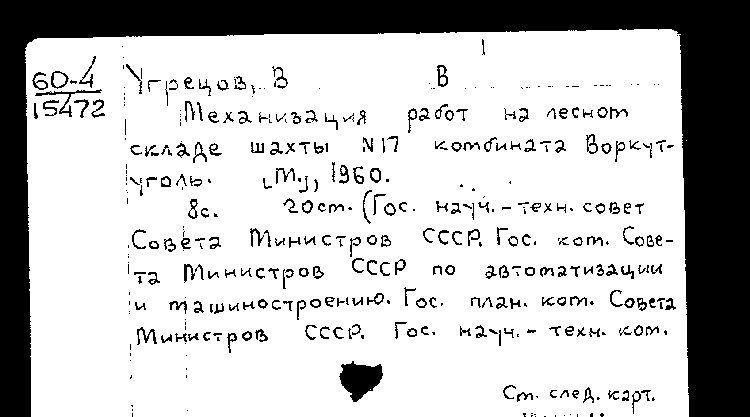 60-4
15472
Угрецов, В В
Механизация работ на лесном
складе шахты N17 комбината Воркут-
уголь. [М.], 1960.
8с. 20см. (Гос. науч.-техн. совет
Совета Министров СССР. Гос. ком. Сове-
та Министров СССР по автоматизации
и машиностроению. Гос. план. ком. Совета
Министров СССР. Гос. науч.-техн. ком.
См. след. карт.